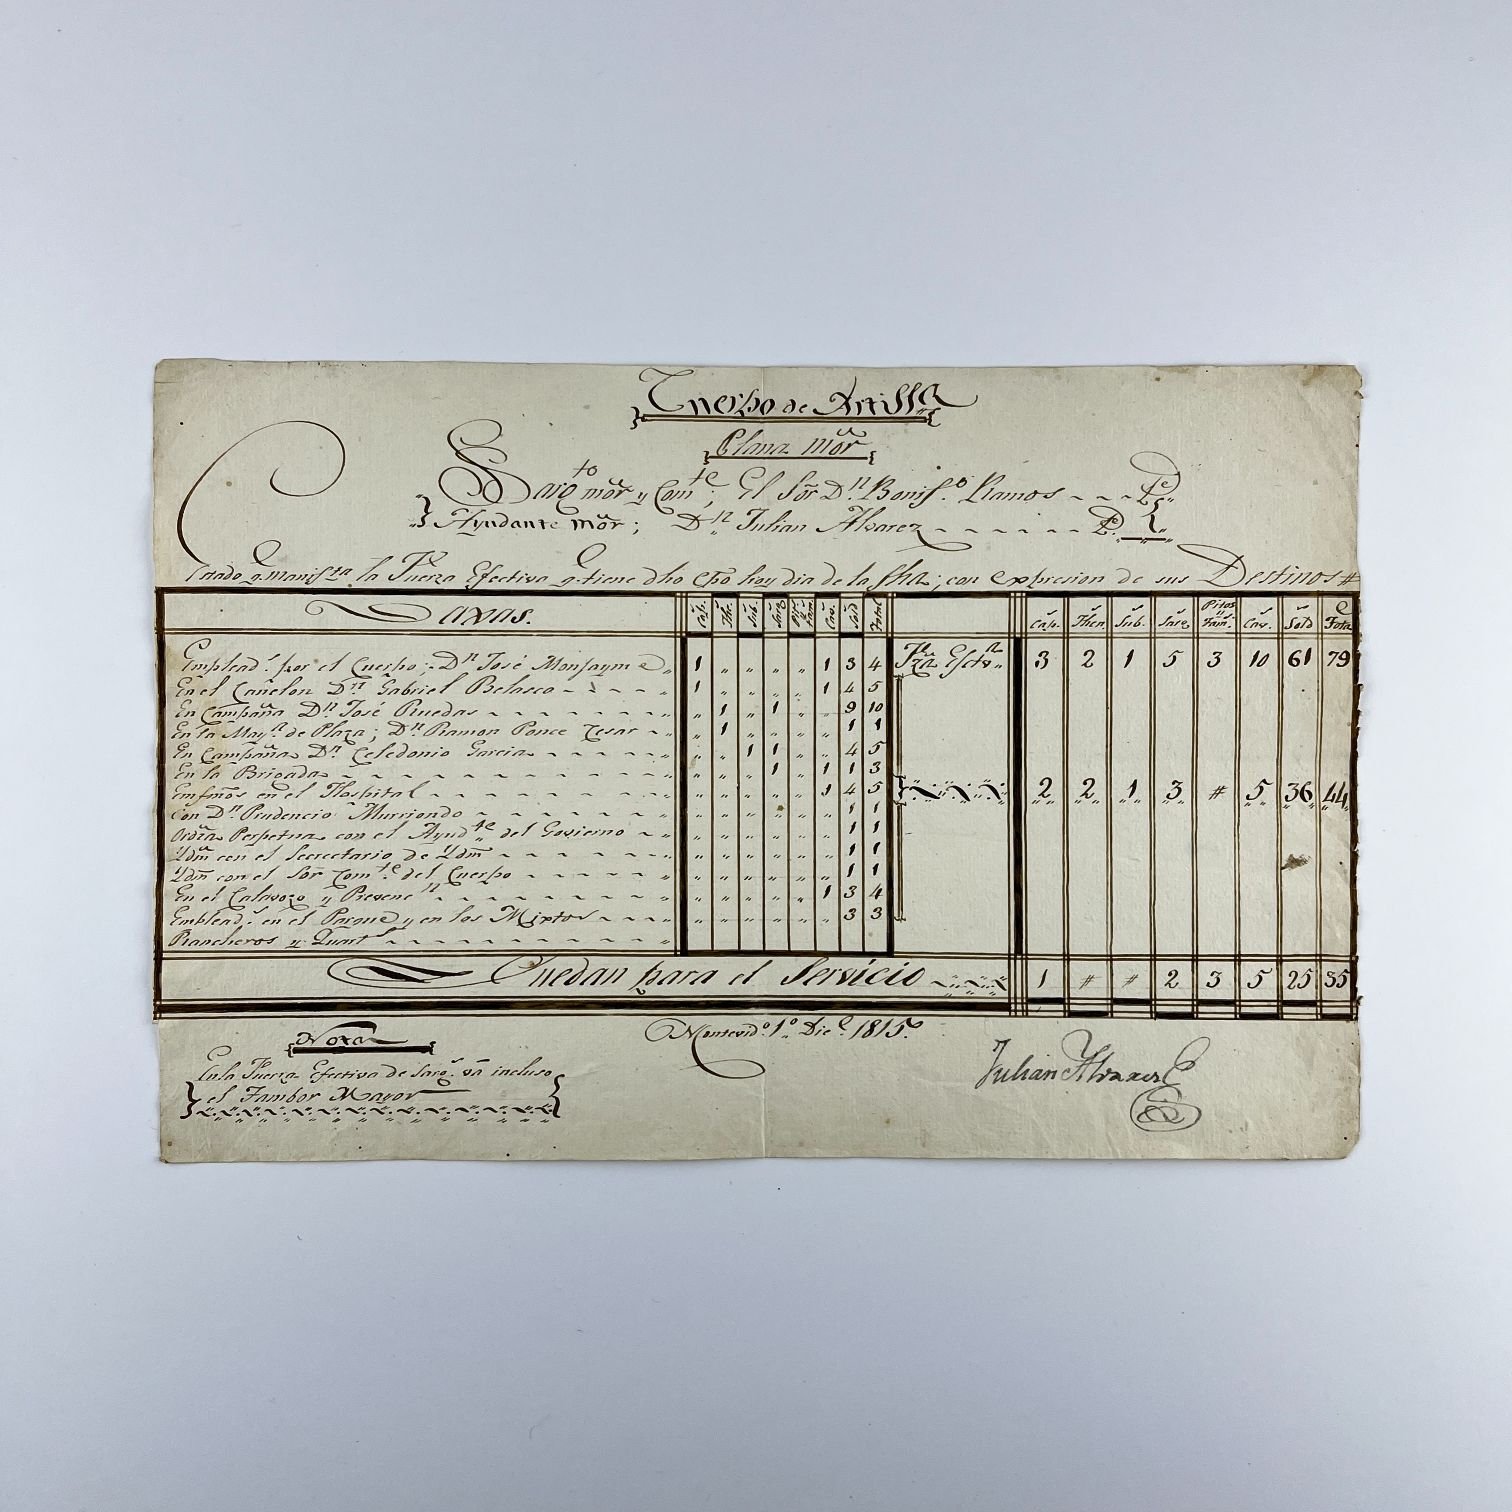 Cuerpo de Artill.ª
Plana mõr
Sarg.to mõr y Com.te; El Sõr D.n Bonif.o Ramos P.e
Ayudante mõr; D.n Julian Alvarez P.e
Estado q. manif.ta la Fuerza Efectiva q. tiene dho cpõ hoy dia de la fha; con expresion de sus Destinos #
Vaxas. Cap. The. Sub. Sarg Pit.s y Tam. Cav. Sold Total Cap. Then. Sub. Sarg Pitos y Tam.s Cav. Sold Tota
Emplead.s por el Cuerpo; D.n José Monjayme 1 " " " " 1 3 4 F.za Efctv.a 3 2 1 5 3 10 61 79
En el Cañelon D.n Gabriel Belasco 1 " " " " 1 4 5
En Campaña D.n José Ruedas " 1 " 1 " " 9 10
En la May.a de Plaza; D.n Ramon Ponce Zesar " 1 " " " " 1 1
En Campaña D.n Celedonio Garcia " " 1 1 " " 4 5
En la Brigada " " " 1 " 1 1 3
Emfmõs en el Hospital " " " " " 1 4 5 2 2 1 3 # 5 36 44
Con D.n Prudencio Murriondo " " " " " " 1 1
Ordza Perpetua con el Ayud.te del Govierno " " " " " " 1 1
Ydm con el Secrectario de Ydm " " " " " " 1 1
Ydm con el Sõr Com.te del Cuerpo " " " " " " 1 1
En el Calavozo y Prevene.n " " " " " 1 3 4
Emblead.s en el Parque y en los Mixtos " " " " " " 3 3
Rancheros y Quart.s
Quedan para el Servicio 1 # # 2 3 5 25 35
Montevid.o 1.o Dic.e 1815.
Nota
En la Fuerza Efectiva de Sarg.s vá incluso
el Tambor Mayor
Julian Alvarez